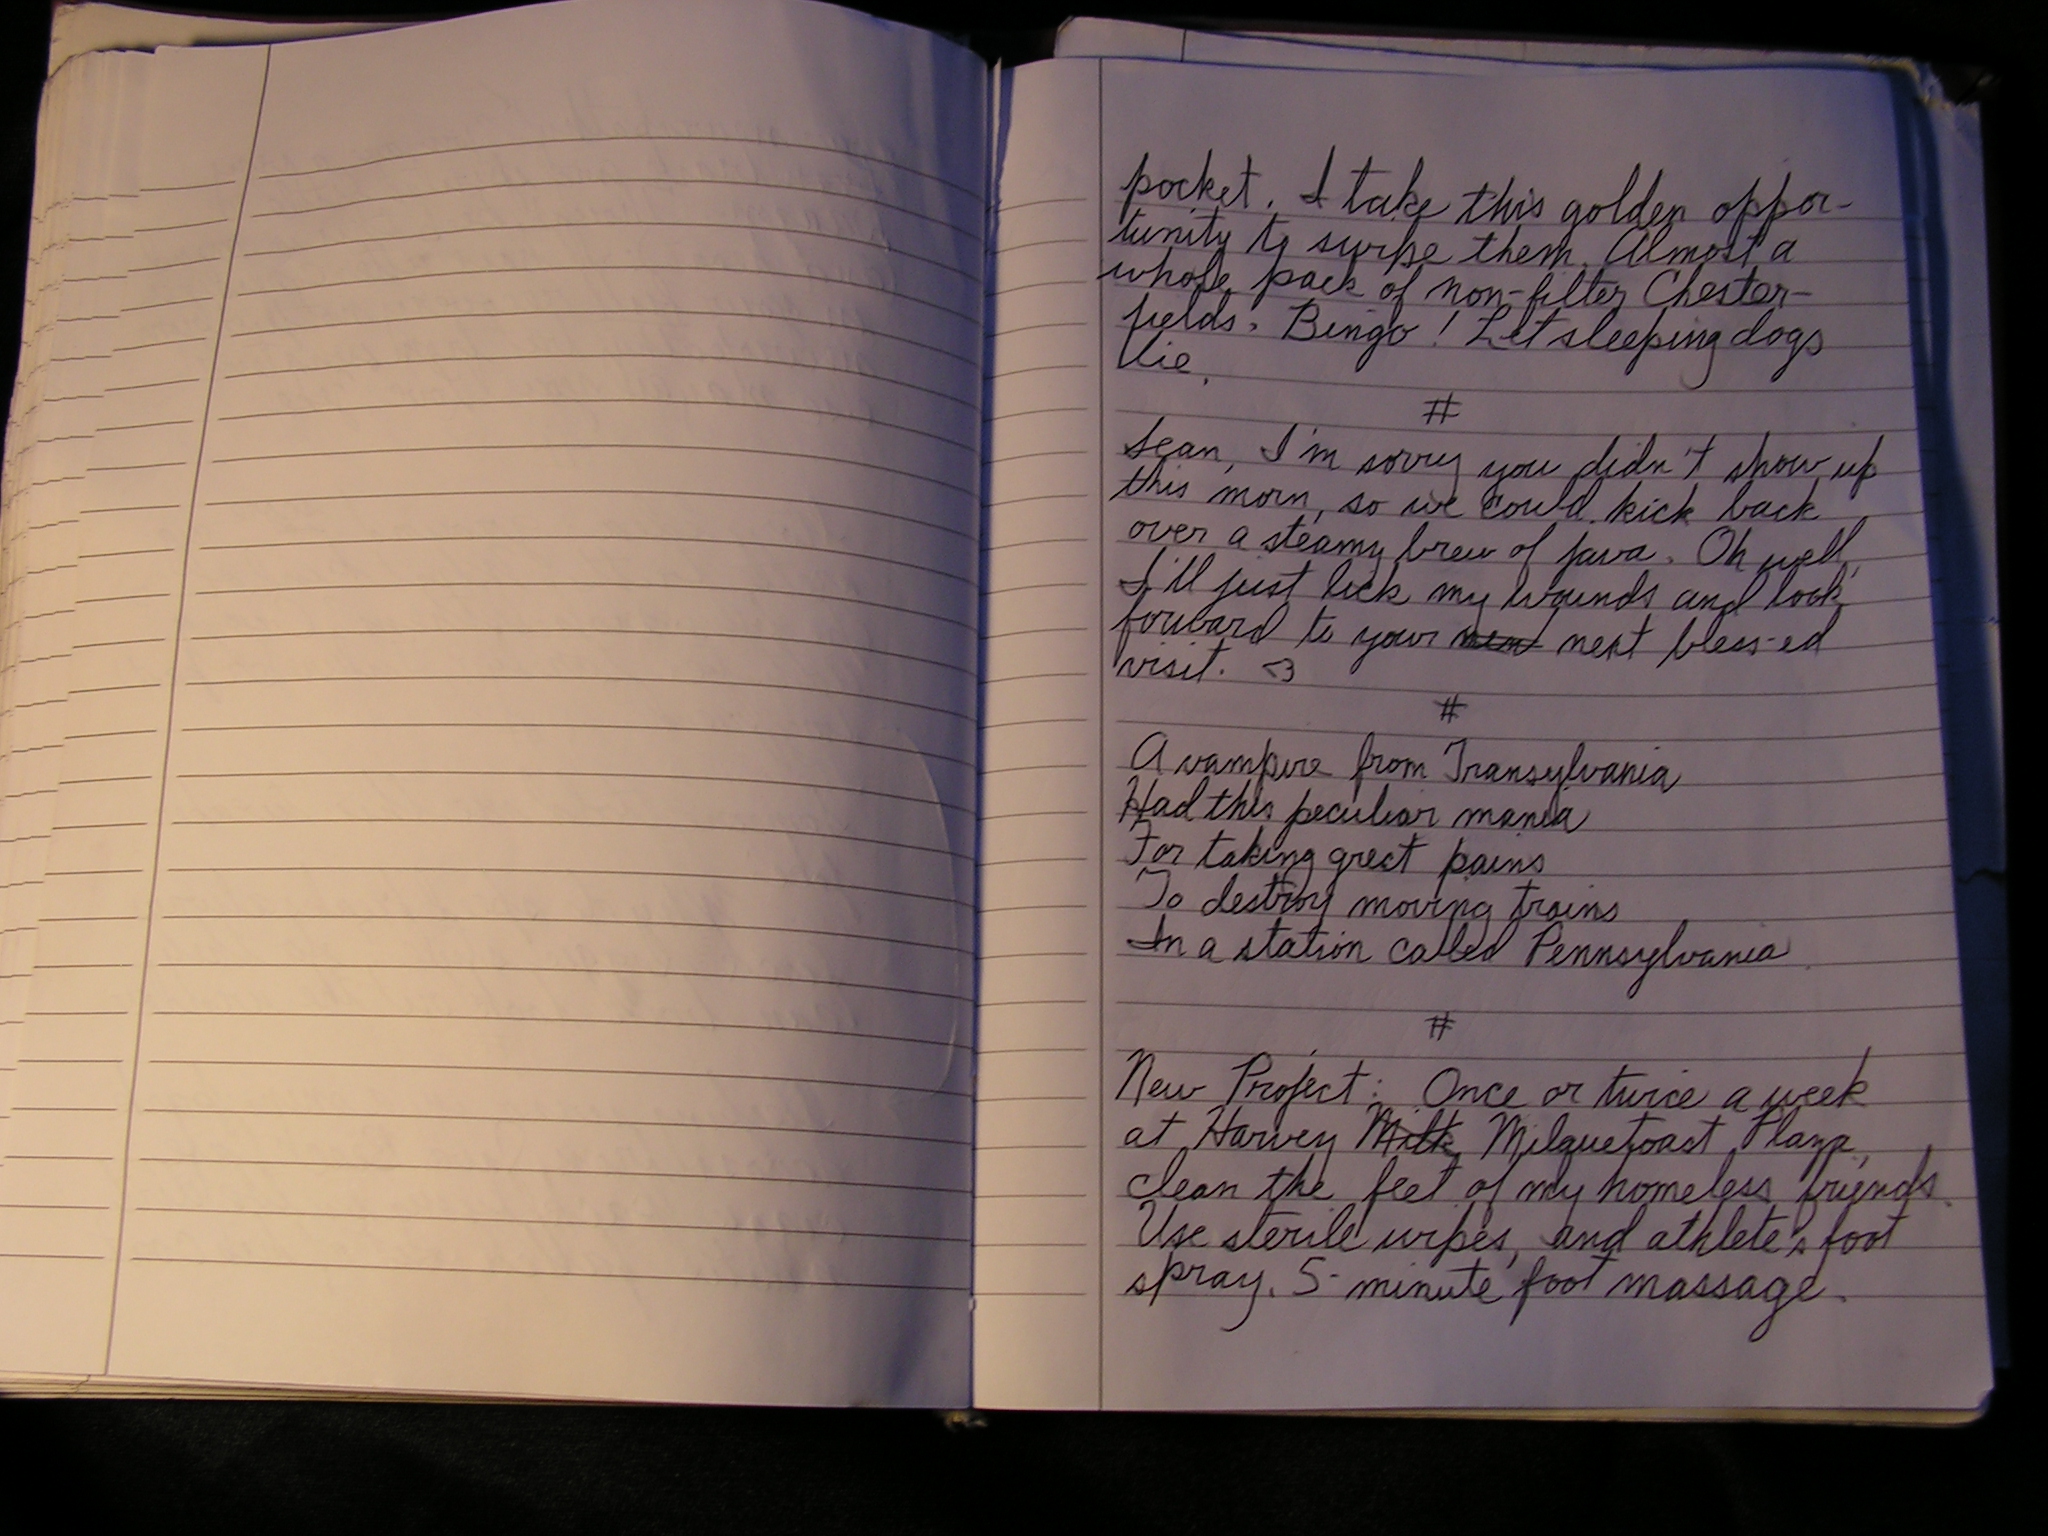 pocket. I take this golden oppor-
tunity to swipe them. Almost a
whole pack of non-filter Chester-
fields. Bingo! Let sleeping dogs
lie.
#
Sean, I'm sorry you didn't show up
this morn, so we could kick back
over a steamy brew of java. Oh well,
I'll just lick my wounds and look
forward to your next bless-ed
visit. <3
#
A vampire from Transylvania
Had this peculiar mania
For taking great pains
To destroy moving trains
In a station called Pennsylvania
#
New Project: Once or twice a week
at Harvey Milk Milquetoast Plaza,
clean the feet of my homeless friends.
Use sterile wipes, and athlete's foot
spray. 5-minute foot massage.